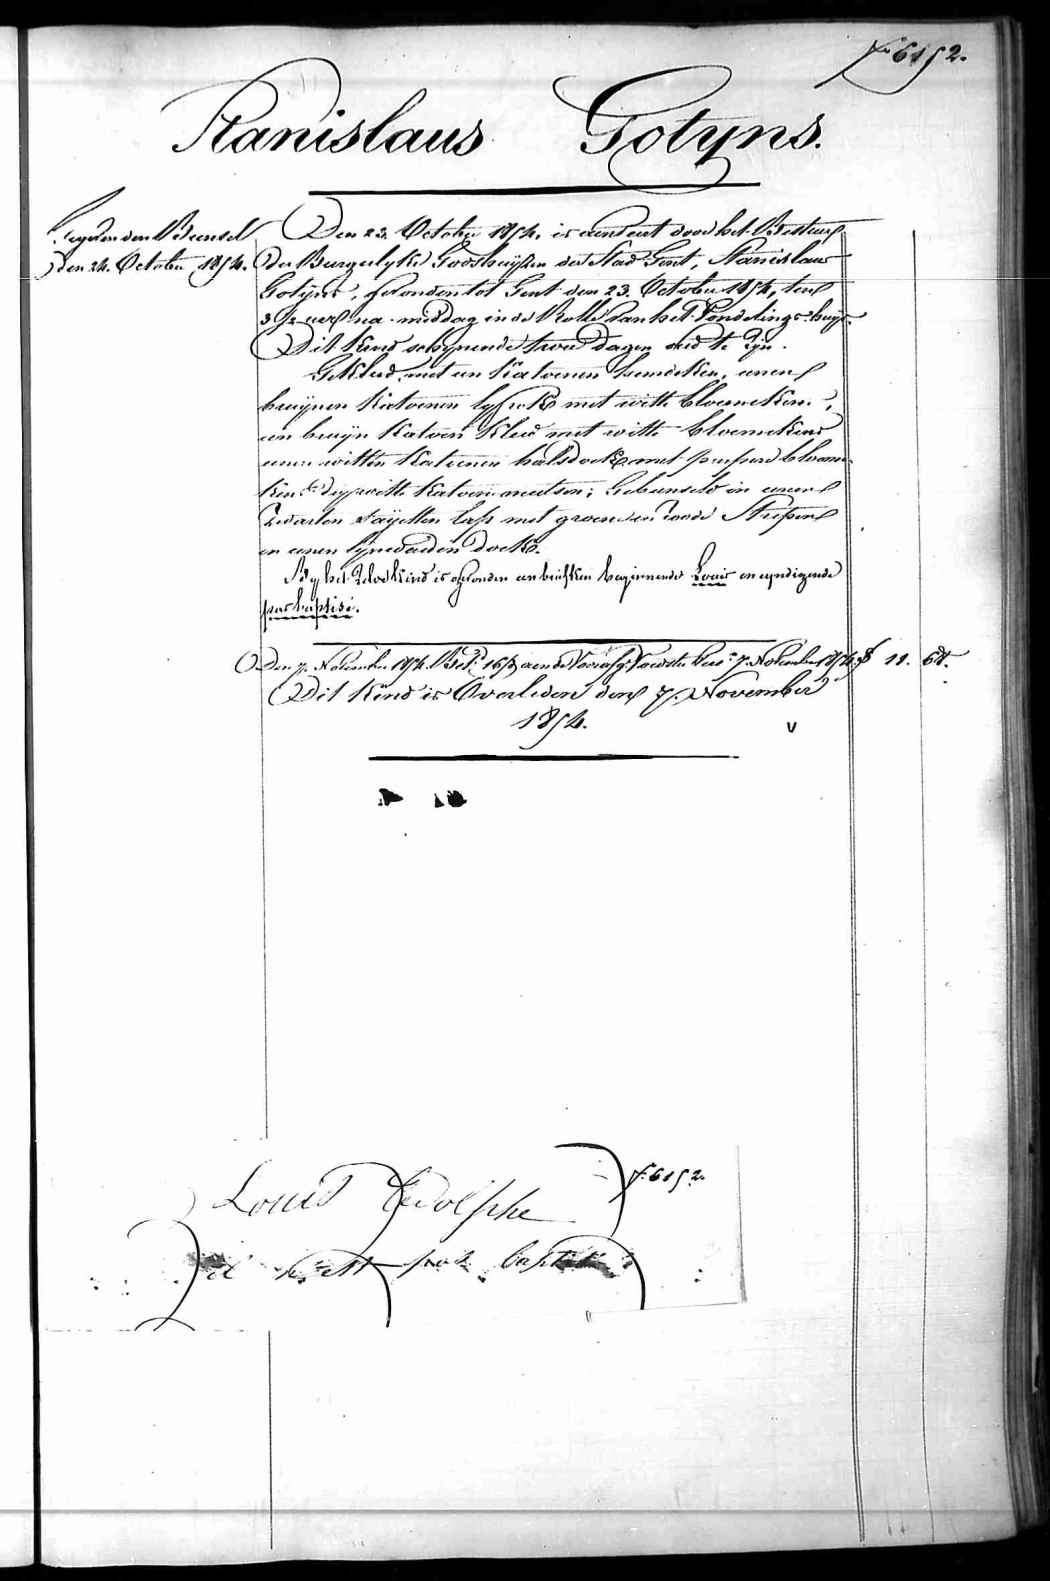 N.º 6152.
Stanislaus Gotyns.
Den 23. October 1854. is aenveert door het Bestuer
den 24. October 1854.
Der Burgerlyke Godshuyzen der Stad Gent, Stanislaus
Gotyns, gevonden tot Gent den 23. October 1854, ten
3 ½ uer na-middag in de Rolle van het Vondelings-huys.
Dit Kind schynende twee dagen oud te zyn.
Gekleed met een Katoenen hemdeken, eenen
bruynen Katoenen lyfrok met witte bloemekens,
een bruyn Katoen Kleed met witte bloemekens
eenen witten Katoenen halsdoek met purpere bloeme-
kens, dry witte Katoene mutsen; Gebunseld in eenen
Zwarten sayetten lap met groene en roode Strepen
en eenen lynwaeden doek.
By het Zelve kind is gevonden een briefken beginnende Louis en eyndigende
par baptisé.
Den 7. November 1854. 7. November 1854. 11. 64.
Dit Kind is Overleden den 7. November
1854.
v
Louis Adolphe
N.º 6152.
il est pas baptisé